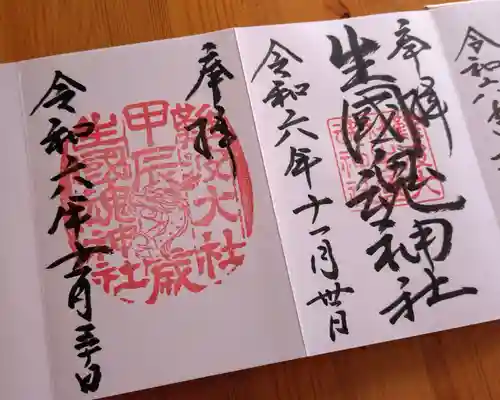 令和六
奉拝
生國魂神社
令和六年十一月卅日
奉拝
難波大社
甲辰歳
生國魂神社
令和六年十一月三十日